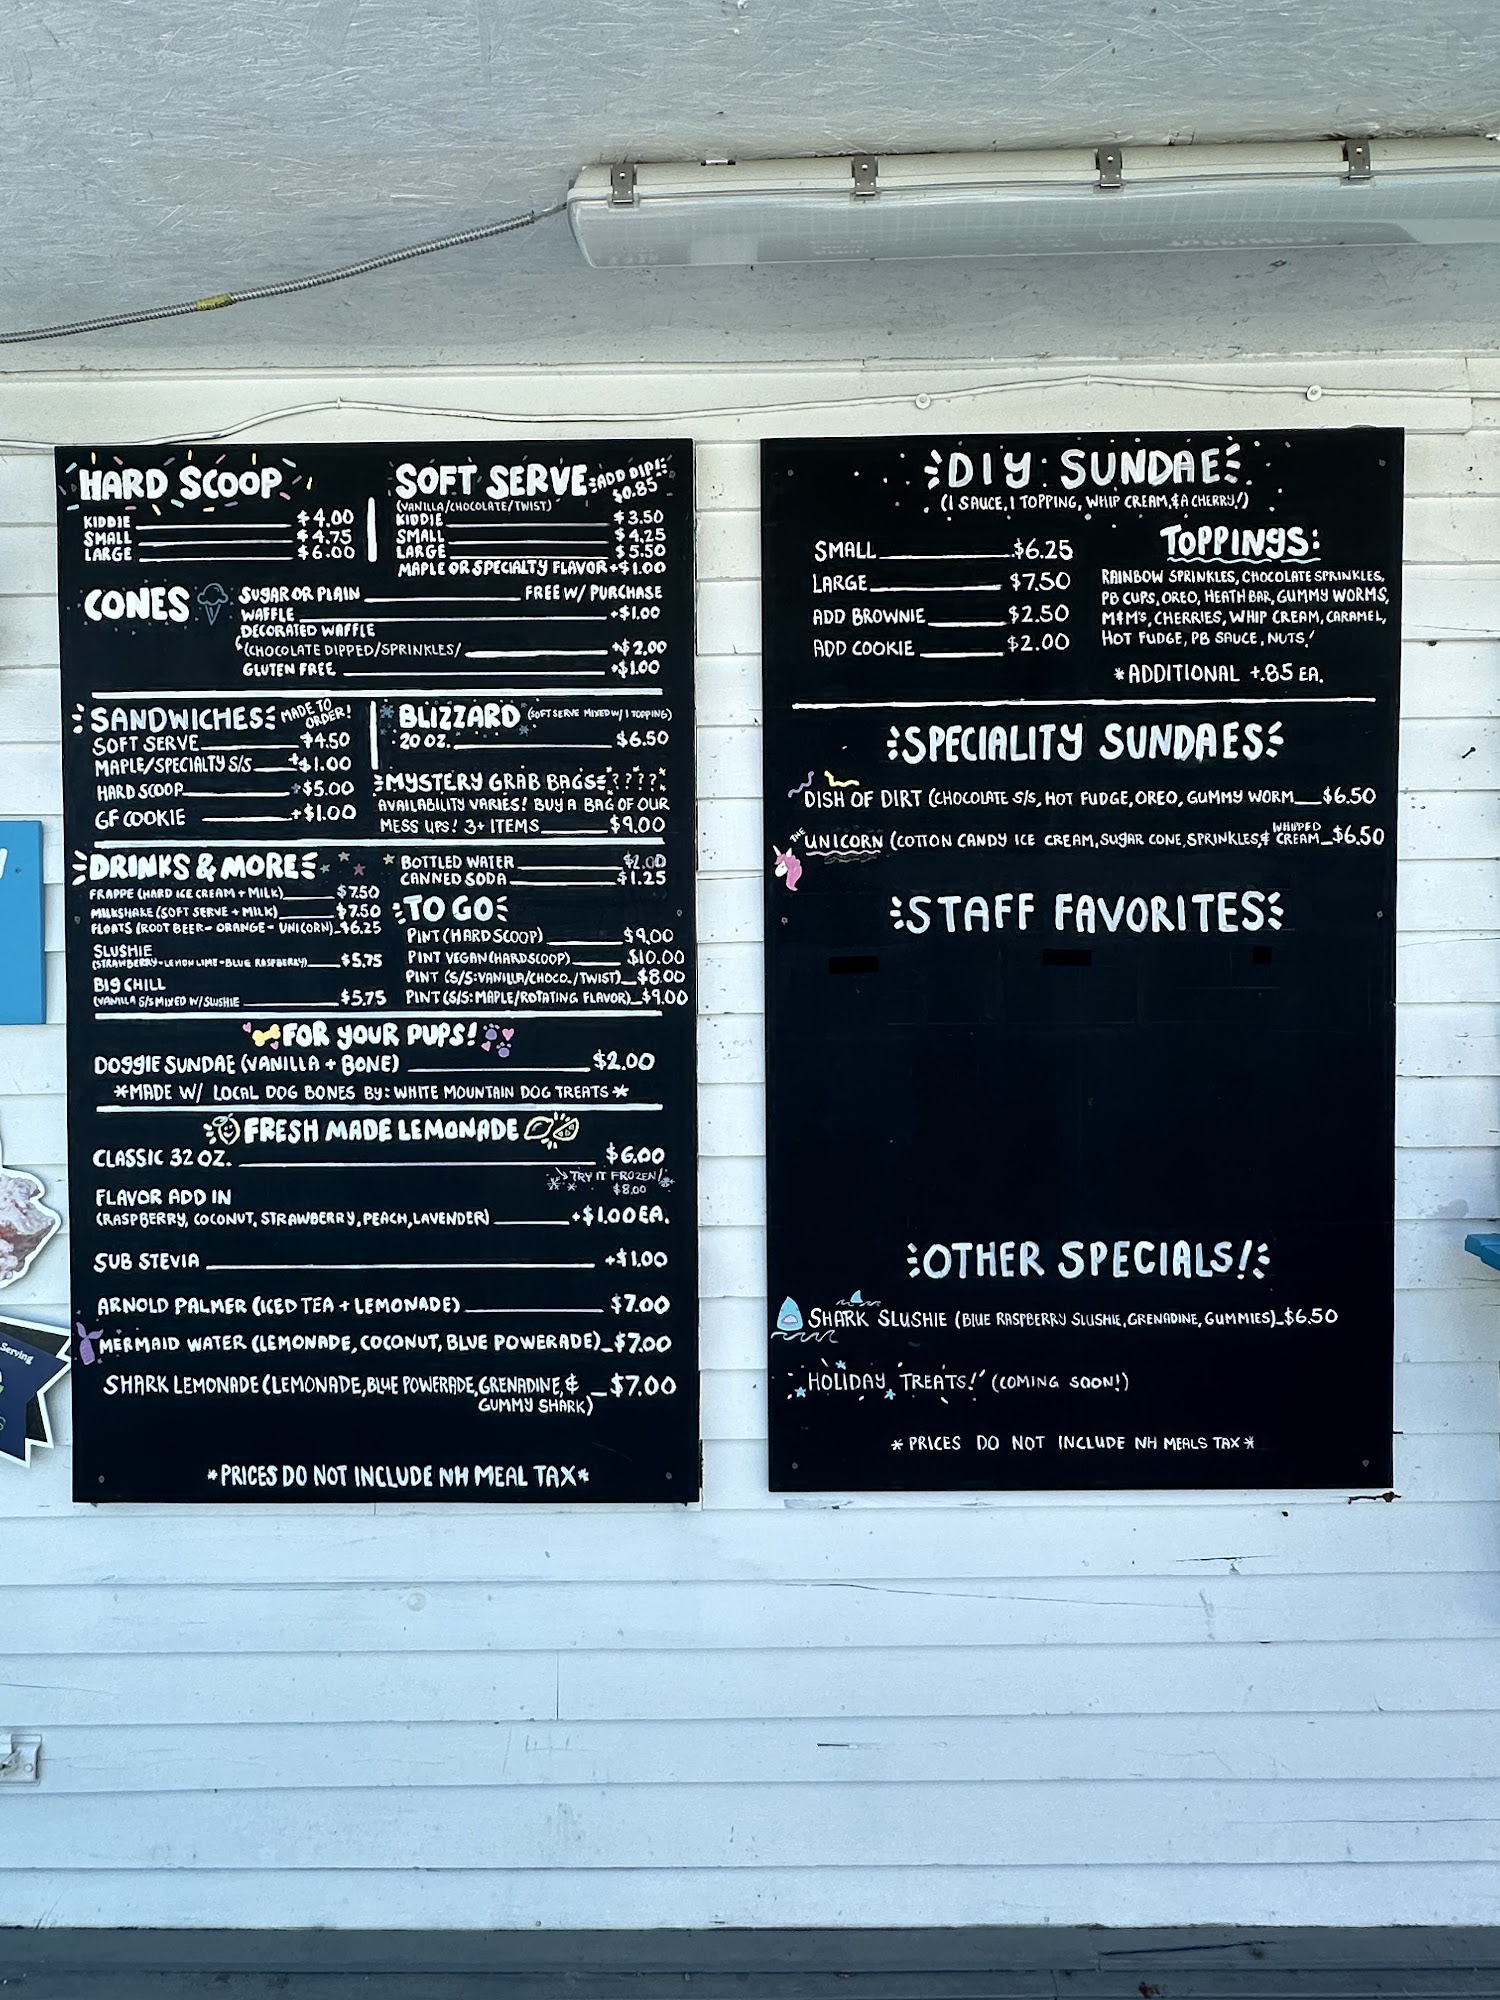 HARD SCOOP
KIDDIE $4.00
SMALL $4.75
LARGE $6.00
SOFT SERVE ADD DIP! $0.85
(VANILLA/CHOCOLATE/TWIST)
KIDDIE $3.50
SMALL $4.25
LARGE $5.50
MAPLE OR SPECIALTY FLAVOR +$1.00
CONES
SUGAR OR PLAIN FREE W/ PURCHASE
WAFFLE +$1.00
DECORATED WAFFLE
(CHOCOLATE DIPPED/SPRINKLES/ +$2.00
GLUTEN FREE +$1.00
SANDWICHES MADE TO ORDER!
SOFT SERVE $4.50
MAPLE/SPECIALTY S/S +$1.00
HARD SCOOP $5.00
GF COOKIE +$1.00
BLIZZARD (SOFT SERVE MIXED W/ 1 TOPPING)
20 OZ. $6.50
MYSTERY GRAB BAGS ????
AVAILABILITY VARIES! BUY A BAG OF OUR
MESS UPS! 3+ ITEMS $9.00
DRINKS & MORE
FRAPPE (HARD ICE CREAM + MILK) $7.50
MILKSHAKE (SOFT SERVE + MILK) $7.50
FLOATS (ROOT BEER - ORANGE - UNICORN) $6.25
SLUSHIE
(STRAWBERRY-LEMON LIME-BLUE RASPBERRY) $5.75
BIG CHILL
(VANILLA S/S MIXED W/ SLUSHIE $5.75
BOTTLED WATER $2.00
CANNED SODA $1.25
TO GO
PINT (HARD SCOOP) $9.00
PINT VEGAN (HARD SCOOP) $10.00
PINT (S/S: VANILLA/CHOCO./TWIST) $8.00
PINT (S/S: MAPLE/ROTATING FLAVOR) $9.00
FOR YOUR PUPS!
DOGGIE SUNDAE (VANILLA + BONE) $2.00
*MADE W/ LOCAL DOG BONES BY: WHITE MOUNTAIN DOG TREATS*
FRESH MADE LEMONADE
CLASSIC 32 OZ. $6.00
TRY IT FROZEN!
$8.00
FLAVOR ADD IN
(RASPBERRY, COCONUT, STRAWBERRY, PEACH, LAVENDER) +$1.00 EA.
SUB STEVIA +$1.00
ARNOLD PALMER (ICED TEA + LEMONADE) $7.00
MERMAID WATER (LEMONADE, COCONUT, BLUE POWERADE) $7.00
SHARK LEMONADE (LEMONADE, BLUE POWERADE, GRENADINE, & $7.00
GUMMY SHARK)
*PRICES DO NOT INCLUDE NH MEAL TAX*
DIY SUNDAE
(1 SAUCE, 1 TOPPING, WHIP CREAM, & A CHERRY!)
SMALL $6.25
LARGE $7.50
ADD BROWNIE $2.50
ADD COOKIE $2.00
TOPPINGS:
RAINBOW SPRINKLES, CHOCOLATE SPRINKLES,
PB CUPS, OREO, HEATH BAR, GUMMY WORMS,
M&M'S, CHERRIES, WHIP CREAM, CARAMEL,
HOT FUDGE, PB SAUCE, NUTS!
*ADDITIONAL +.85 EA.
SPECIALITY SUNDAES
DISH OF DIRT (CHOCOLATE S/S, HOT FUDGE, OREO, GUMMY WORM $6.50
THE UNICORN (COTTON CANDY ICE CREAM, SUGAR CONE, SPRINKLES & WHIPPED CREAM $6.50
STAFF FAVORITES
OTHER SPECIALS!
SHARK SLUSHIE (BLUE RASPBERRY SLUSHIE, GRENADINE, GUMMIES) $6.50
HOLIDAY TREATS! (COMING SOON!)
*PRICES DO NOT INCLUDE NH MEALS TAX*
Serving